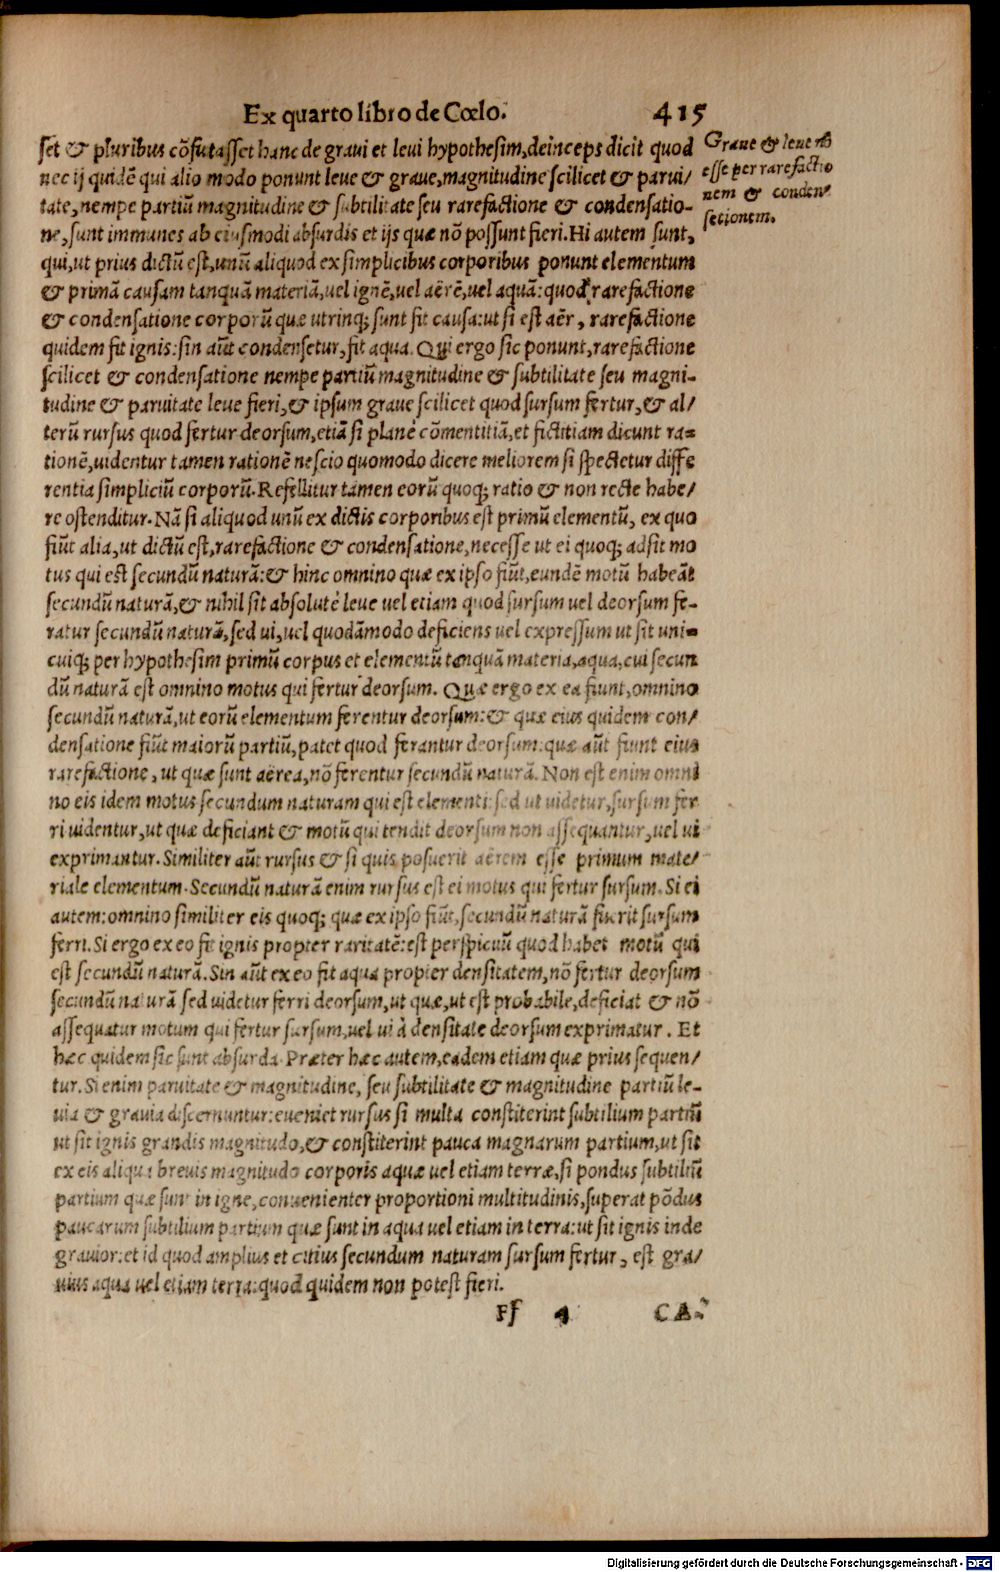 Ex quarto libro de Cœlo. 415
set & pluribus cõfutasset hanc de graui et leui hypothesim, deinceps dicit quod
nec ij quidẽ qui alio modo ponunt leue & graue, magnitudine scilicet & parui/
tate, nempe partiũ magnitudine & subtilitate seu rarefactione & condensatio-
ne, sunt immunes ab eiusmodi absurdis et ijs quæ nõ possunt fieri. Hi autem sunt,
qui, ut prius dictũ est, unũ aliquod ex simplicibus corporibus ponunt elementum
& primã causam tanquã materiã, uel ignẽ, uel aërẽ, uel aquã: quod rarefactione
& condensatione corporũ quæ utrinq; sunt fit causa: ut si est aër, rarefactione
quidem fit ignis: sin aũt condensetur, fit aqua. Qui ergo sic ponunt, rarefactione
scilicet & condensatione nempe partiũ magnitudine & subtilitate seu magni-
tudine & paruitate leue fieri, & ipsum graue scilicet quod sursum fertur, & al/
terũ rursus quod fertur deorsum, etiã si planè cõmentitiã, et fictitiam dicunt ra-
tionẽ, uidentur tamen rationẽ nescio quomodo dicere meliorem si spectetur diffe
rentia simpliciũ corporũ. Refellitur tamen eorũ quoq; ratio & non recte habe/
re ostenditur. Nã si aliquod unũ ex dictis corporibus est primũ elementũ, ex quo
fiũt alia, ut dictũ est, rarefactione & condensatione, necesse ut ei quoq; adsit mo
tus qui est secundũ naturã: & hinc omnino quæ ex ipso fiũt, eundẽ motũ habeãt
secundũ naturã, & nihil sit absolutè leue uel etiam quod sursum uel deorsum fe-
ratur secundũ naturã, sed ui, uel quodãmodo deficiens uel expressum ut sit uni-
cuiq; per hypothesim primũ corpus et elementũ tanquã materia, aqua, cui secun
dũ naturã est omnino motus qui fertur deorsum. Quæ ergo ex ea fiunt, omnino
secundũ naturã, ut eorũ elementum ferentur deorsum: & quæ eius quidem con/
densatione fiũt maiorũ partiũ, patet quod ferantur deorsum: quæ aũt fiunt eius
rarefactione, ut quæ sunt aërea, nõ ferentur secundũ naturã. Non est enim omni
no eis idem motus secundum naturam qui est elementi: sed ut uidetur, sursum fer
ri uidentur, ut quæ deficiant & motũ qui tendit deorsum non assequantur, uel ui
exprimantur. Similiter aũt rursus & si quis posuerit aërem esse primum mate/
riale elementum. Secundũ naturã enim rursus est ei motus qui fertur sursum. Si ei
autem: omnino similiter eis quoq; quæ ex ipso fiũt, secundũ naturã fuerit sursum
ferri. Si ergo ex eo fit ignis propter raritatẽ: est perspicuũ quod habet motũ qui
est secundũ naturã. Sin aũt ex eo fit aqua propter densitatem, nõ fertur deorsum
secundũ naturã sed uidetur ferri deorsum, ut quæ, ut est probabile, deficiat & nõ
assequatur motum qui fertur sursum, uel ui à densitate deorsum exprimatur. Et
hæc quidem sic sunt absurda. Præter hæc autem, eadem etiam quæ prius sequen/
tur. Si enim paruitate & magnitudine, seu subtilitate & magnitudine partiũ le-
uia & grauia discernuntur: eueniet rursus si multa constiterint subtilium partiũ
ut sit ignis grandis magnitudo, & constiterint pauca magnarum partium, ut sit
ex eis aliqua breuis magnitudo corporis aquæ uel etiam terræ, si pondus subtiliũ
partium quæ sunt in igne, conuenienter proportioni multitudinis, superat põdus
paucarum subtilium partium quæ sunt in aqua uel etiam in terra: ut sit ignis inde
grauior: et id quod amplius et citius secundum naturam sursum fertur, est gra/
uius aqua uel etiam terra: quod quidem non potest fieri.
Ff 4 CA-
Graue & leue nõ
esse per rarefactio
nem & conden-
sationem.
Digitalisierung gefördert durch die Deutsche Forschungsgemeinschaft - DFG